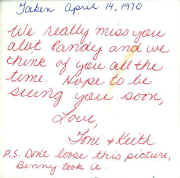 Taken April 14, 1970
We really miss you
alot Randy and we
think of you all the
time. Hope to be
seeing you soon,
Love,
Toni + Keith
P.S. Dont loose this picture,
Benny took it.